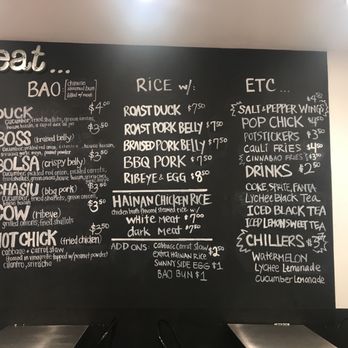 eat...
BAO [chinese steamed bun
DUCK $4.00
cucumber, fried shallots, green onions,
BOSS (braised belly) $3.50
BOLSA (crispy belly) $3.50
CHASIU (bbq pork) $3
cucumber, fried shallots, green onions
COW (ribeye) $3.50
HOT CHICK (fried chicken)
cabbage + carrot slaw
tossed in vinaigrette topped w/ peanut powder
cilantro, sriracha
RICE w/:
ROAST DUCK $7.50
ROAST PORK BELLY $7.50
BRAISED PORK BELLY $7.50
BBQ PORK $7.50
RIBEYE & EGG $8.50
HAINAN CHICKEN RICE
chicken broth flavored steamed rice w/
WHITE meat $7.00
dark meat $7.50
ADD ONS: cabbage, carrot slaw $2.50
extra Hainan Rice
SUNNY SIDE EGG $1
BAO BUN $1
ETC...
SALT & PEPPER WINGS
POP CHICK $4.50
POTSTICKERS $3.50
CAULI FRIES $4.50
CINNABAO FRIES
DRINKS $2.50
COKE, SPRITE, FANTA
Lychee Black Tea
ICED BLACK TEA
ICED LEMON SWEET TEA
CHILLERS $3.50
WATERMELON
LYCHEE Lemonade
CUCUMBER LEMONADE